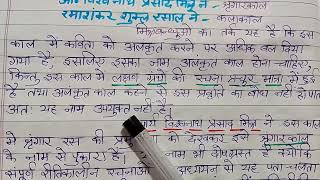 आ० विश्वनाथ प्रसाद मिश्र ने - श्रृंगारकाल
रमाशंकर शुक्ल रसाल ने - कलाकाल
मिश्रबन्धुओं का तर्क यह है कि इस
काल में कविता को अलंकृत करने पर अधिक बल दिया
गया है, इसलिए इसका नाम अलंकृत काल होना चाहिए,
किन्तु इस काल में लक्षण ग्रंथों की रचना प्रचुर मात्रा में हुई
है तथा अलंकृत काल कहने से इस प्रवृत्ति का बोध नहीं होता
अतः यह नाम उपयुक्त नहीं है।
विश्वनाथ प्रसाद मिश्र ने इस काल
में श्रृंगार रस की को देखकर इसे श्रृंगारकाल
के नाम से पुकारा है। नाम भी दोषग्रस्त है क्योंकि
संपूर्ण रीतिकालीन रचनाओं अध्ययन से यह पता चलता